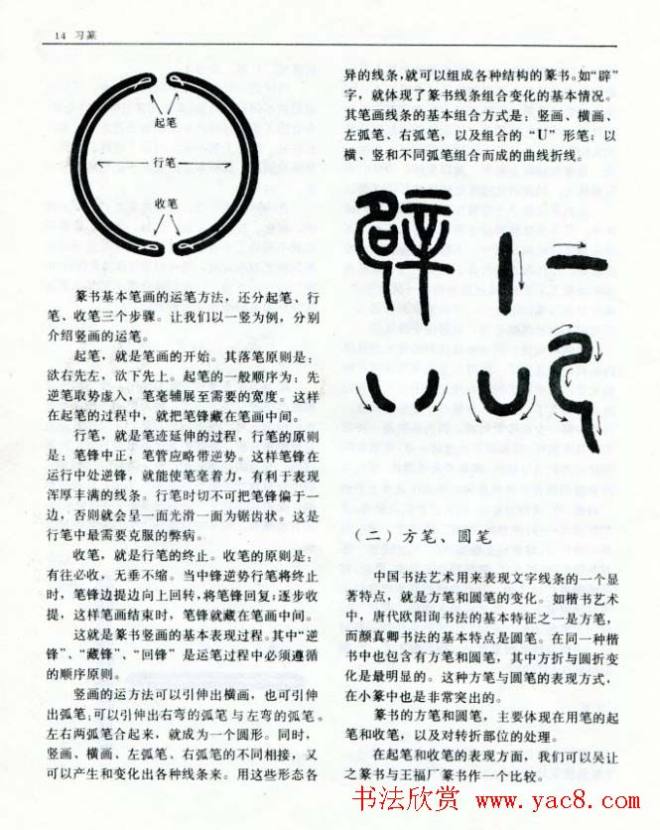 14 习篆
起笔
行笔
收笔
篆书基本笔画的运笔方法，还分起笔、行
笔、收笔三个步骤。让我们以一竖为例，分别
介绍竖画的运笔。
起笔，就是笔画的开始。其落笔原则是：
欲右先左，欲下先上。起笔的一般顺序为：先
逆笔取势虚入，笔毫辅展至需要的宽度。这样
在起笔的过程中，就把笔锋藏在笔画中间。
行笔，就是笔迹延伸的过程，行笔的原则
是：笔锋中正，笔管应略带逆势。这样笔锋在
运行中处逆锋，就能使笔毫着力，有利于表现
浑厚丰满的线条。行笔时切不可把笔锋偏于一
边，否则就会呈一面光滑一面为锯齿状。这是
行笔中最需要克服的弊病。
收笔，就是行笔的终止。收笔的原则是：
有往必收，无垂不缩。当中锋逆势行笔将终止
时，笔锋边提边向上回转，将笔锋回复；逐步收
提，这样笔画结束时，笔锋就藏在笔画中间。
这就是篆书竖画的基本表现过程。其中“逆
锋”、“藏锋”、“回锋”是运笔过程中必须遵循
的顺序原则。
竖画的运方法可以引伸出横画，也可引伸
出弧笔；可以引伸出右弯的弧笔与左弯的弧笔。
左右两弧笔合起来，就成为一个圆形。同时，
竖画、横画、左弧笔、右弧笔的不同相接，又
可以产生和变化出各种线条来。用这些形态各
异的线条，就可以组成各种结构的篆书。如“辟”
字，就体现了篆书线条组合变化的基本情况。
其笔画线条的基本组合方式是：竖画、横画、
左弧笔、右弧笔，以及组合的“U”形笔；以
横、竖和不同弧笔组合而成的曲线折线。
辟
（二）方笔、圆笔
中国书法艺术用来表现文字线条的一个显
著特点，就是方笔和圆笔的变化。如楷书艺术
中，唐代欧阳询书法的基本特征之一是方笔，
而颜真卿书法的基本特点是圆笔。在同一种楷
书中也包含有方笔和圆笔，其中方折与圆折变
化是最明显的。这种方笔与圆笔的表现方式，
在小篆中也是非常突出的。
篆书的方笔和圆笔，主要体现在用笔的起
笔和收笔，以及对转折部位的处理。
在起笔和收笔的表现方面，我们可以吴让
之篆书与王福厂篆书作一个比较。
书法欣赏 www.yac8.com